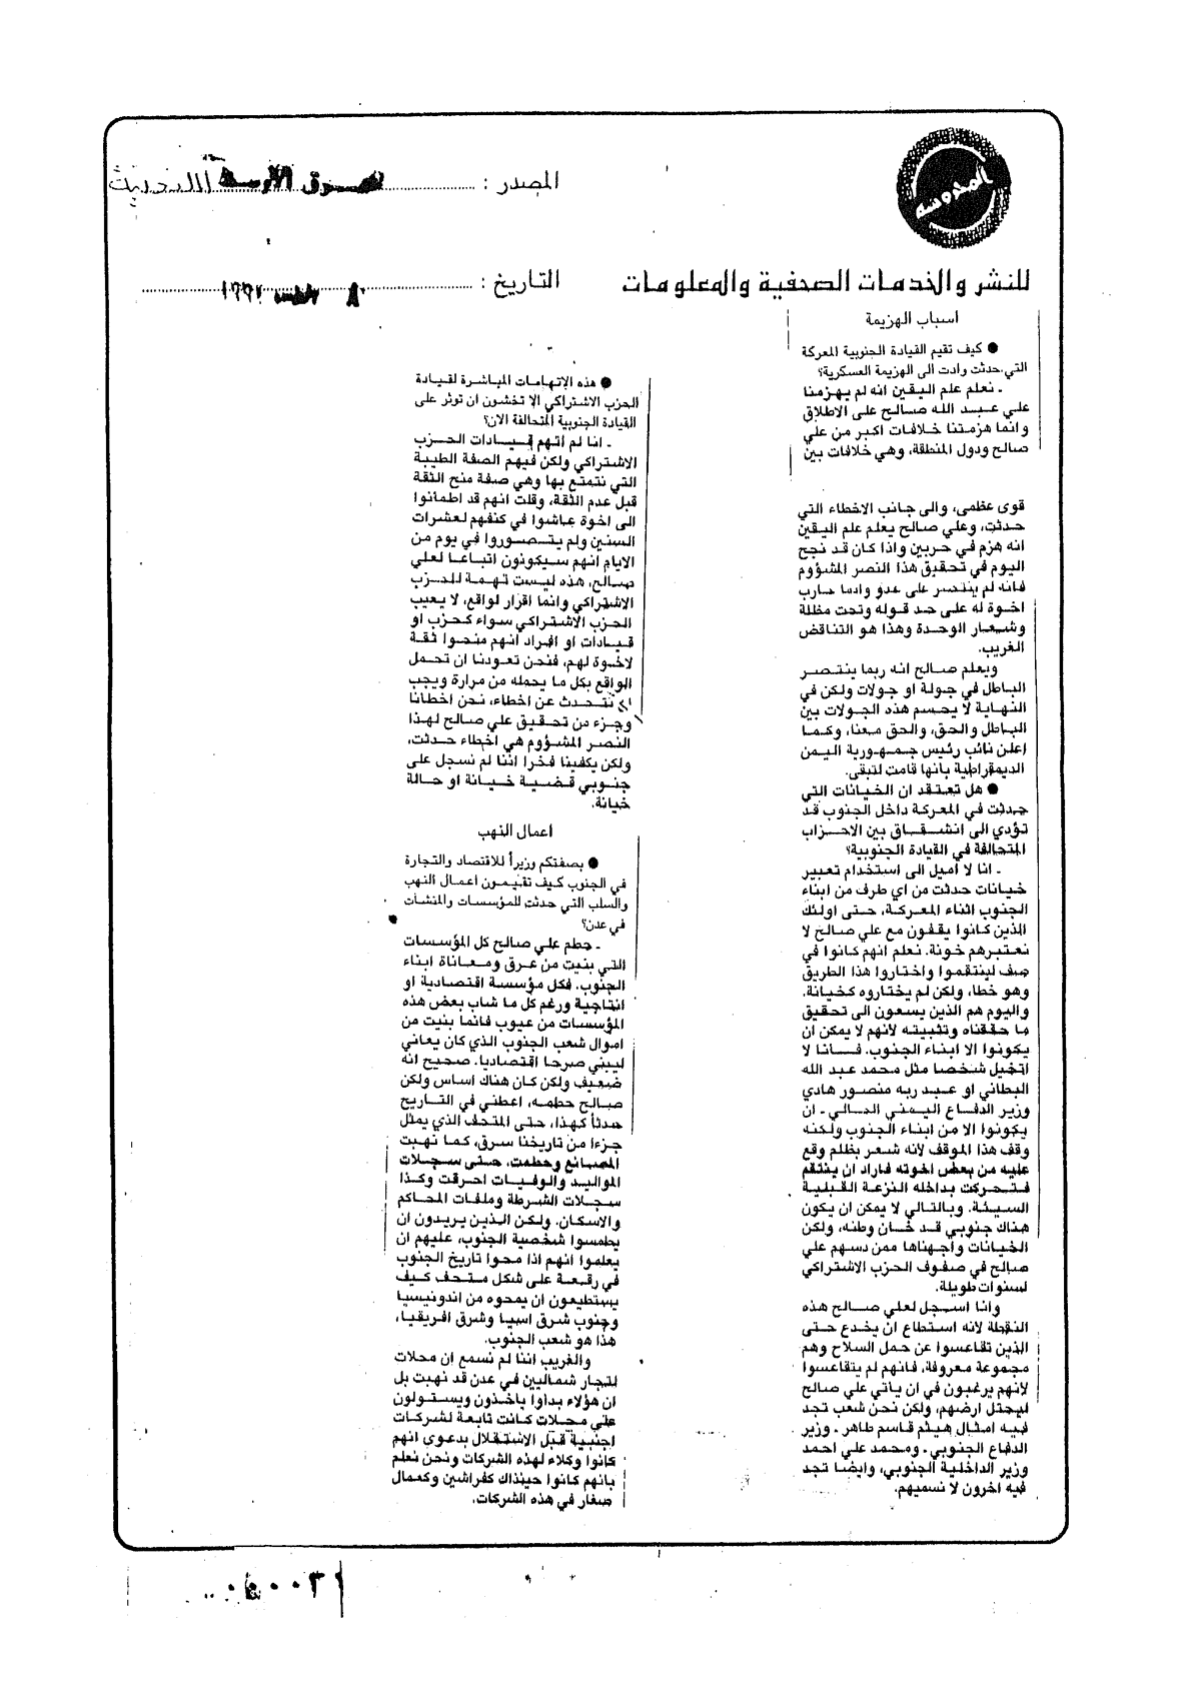 المدرسة
المصدر :
الشرق الأوسط
للنشر والخدمات الصحفية والمعلومات
التاريخ :
٨
اسباب الهزيمة
● كيف تقيم القيادة الجنوبية المعركة
التي حدثت وادت الى الهزيمة العسكرية؟
ـ نعلم علم اليقين انه لم يهزمنا
علي عبد الله صالح على الاطلاق
وانما هزمتنا خلافات اكبر من علي
صالح ودول المنطقة، وهي خلافات بين
قوى عظمى، والى جانب الاخطاء التي
حدثت، وعلي صالح يعلم علم اليقين
انه هزم في حربين واذا كان قد نجح
اليوم في تحقيق هذا النصر المشؤوم
فانه لم ينتصر على عدو وانما حارب
اخوة له على حد قوله وتحت مظلة
وشعار الوحدة وهذا هو التناقض
الغريب.
ويعلم صالح انه ربما ينتصر
الباطل في جولة او جولات ولكن في
النهاية لا يحسم هذه الجولات بين
الباطل والحق، والحق معنا، وكما
اعلن نائب رئيس جمهورية اليمن
الديمقراطية بانها قامت لتبقى.
● هل تعتقد ان الخيانات التي
حدثت في المعركة داخل الجنوب قد
تؤدي الى انشقاق بين الاحزاب
المتحالفة في القيادة الجنوبية؟
ـ انا لا اميل الى استخدام تعبير
خيانات حدثت من اي طرف من ابناء
الجنوب اثناء المعركة، حتى اولئك
الذين كانوا يقفون مع علي صالح لا
نعتبرهم خونة. نعلم انهم كانوا في
صف لينتقموا واختاروا هذا الطريق
وهو خطا، ولكن لم يختاروه كخيانة.
واليوم هم الذين يسعون الى تحقيق
ما حققناه وتثبيته لأنهم لا يمكن ان
يكونوا الا ابناء الجنوب. فانا لا
اتخيل شخصا مثل محمد عبد الله
البطاني او عبد ربه منصور هادي
وزير الدفاع اليمني الحالي ـ ان
يكونوا الا من ابناء الجنوب ولكنه
وقف هذا الموقف لأنه شعر بظلم وقع
عليه من بعض اخوته فاراد ان ينتقم
فتحركت بداخله النزعة القبلية
السيئة. وبالتالي لا يمكن ان يكون
هناك جنوبي قد خان وطنه، ولكن
الخيانات واجهناها ممن دسهم علي
صالح في صفوف الحزب الاشتراكي
لسنوات طويلة.
وانا اسجل لعلي صالح هذه
النقطة لانه استطاع ان يخدع حتى
الذين تقاعسوا عن حمل السلاح وهم
مجموعة معروفة، فانهم لم يتقاعسوا
لأنهم يرغبون في ان ياتي علي صالح
ليحتل ارضهم، ولكن نحن شعب تجد
فيه امثال هيثم قاسم طاهر ـ وزير
الدفاع الجنوبي ـ ومحمد علي احمد
وزير الداخلية الجنوبي، وايضا تجد
فيه اخرون لا نسميهم.
● هذه الاتهامات المباشرة لقيادة
الحزب الاشتراكي الا تخشون ان توثر على
القيادة الجنوبية المتحالفة الان؟
ـ انا لم اتهم قيادات الحزب
الاشتراكي ولكن فيهم الصفة الطيبة
التي نتمتع بها وهي صفة منح الثقة
قبل عدم الثقة، وقلت انهم قد اطمانوا
الى اخوة عاشوا في كنفهم لعشرات
السنين ولم يتصوروا في يوم من
الايام انهم سيكونون اتباعا لعلي
صالح، هذه ليست تهمة للحزب
الاشتراكي وانما اقرار لواقع، لا يعيب
الحزب الاشتراكي سواء كحزب او
قيادات او افراد انهم منحوا ثقة
لاخوة لهم، فنحن تعودنا ان نحمل
الواقع بكل ما يحمله من مرارة ويجب
ان نتحدث عن اخطاء، نحن اخطانا
وجزء من تحقيق علي صالح لهذا
النصر المشؤوم هي اخطاء حدثت،
ولكن يكفينا فخرا اننا لم نسجل على
جنوبي قضية خيانة او حالة
خيانة.
اعمال النهب
● بصفتكم وزيراً للاقتصاد والتجارة
في الجنوب كيف تقيمون اعمال النهب
والسلب التي حدثت للمؤسسات والمنشآت
في عدن؟
ـ حطم علي صالح كل المؤسسات
التي بنيت من عرق ومعاناة ابناء
الجنوب. فكل مؤسسة اقتصادية او
انتاجية ورغم كل ما شاب بعض هذه
المؤسسات من عيوب فانما بنيت من
اموال شعب الجنوب الذي كان يعاني
ليبني صرحا اقتصاديا. صحيح انه
ضعيف ولكن كان هناك اساس ولكن
صالح حطمه، اعطني في التاريخ
حدثاً كهذا، حتى المتحف الذي يمثل
جزءا من تاريخنا سرق، كما نهبت
المصانع وحطمت، حتى سجلات
المواليد والوفيات احرقت وكذا
سجلات الشرطة وملفات المحاكم
والاسكان. ولكن الذين يريدون ان
يطمسوا شخصية الجنوب، عليهم ان
يعلموا انهم اذا محوا تاريخ الجنوب
في رقعة على شكل متحف كيف
يستطيعون ان يمحوه من اندونيسيا
وجنوب شرق اسيا وشرق افريقيا،
هذا هو شعب الجنوب.
والغريب اننا لم نسمع ان محلات
لتجار شماليين في عدن قد نهبت بل
ان هؤلاء بداوا ياخذون ويستولون
على محلات كانت تابعة لشركات
اجنبية قبل الاستقلال بدعوى انهم
كانوا وكلاء لهذه الشركات ونحن نعلم
بانهم كانوا حينذاك كفراشين وكعمال
صغار في هذه الشركات.